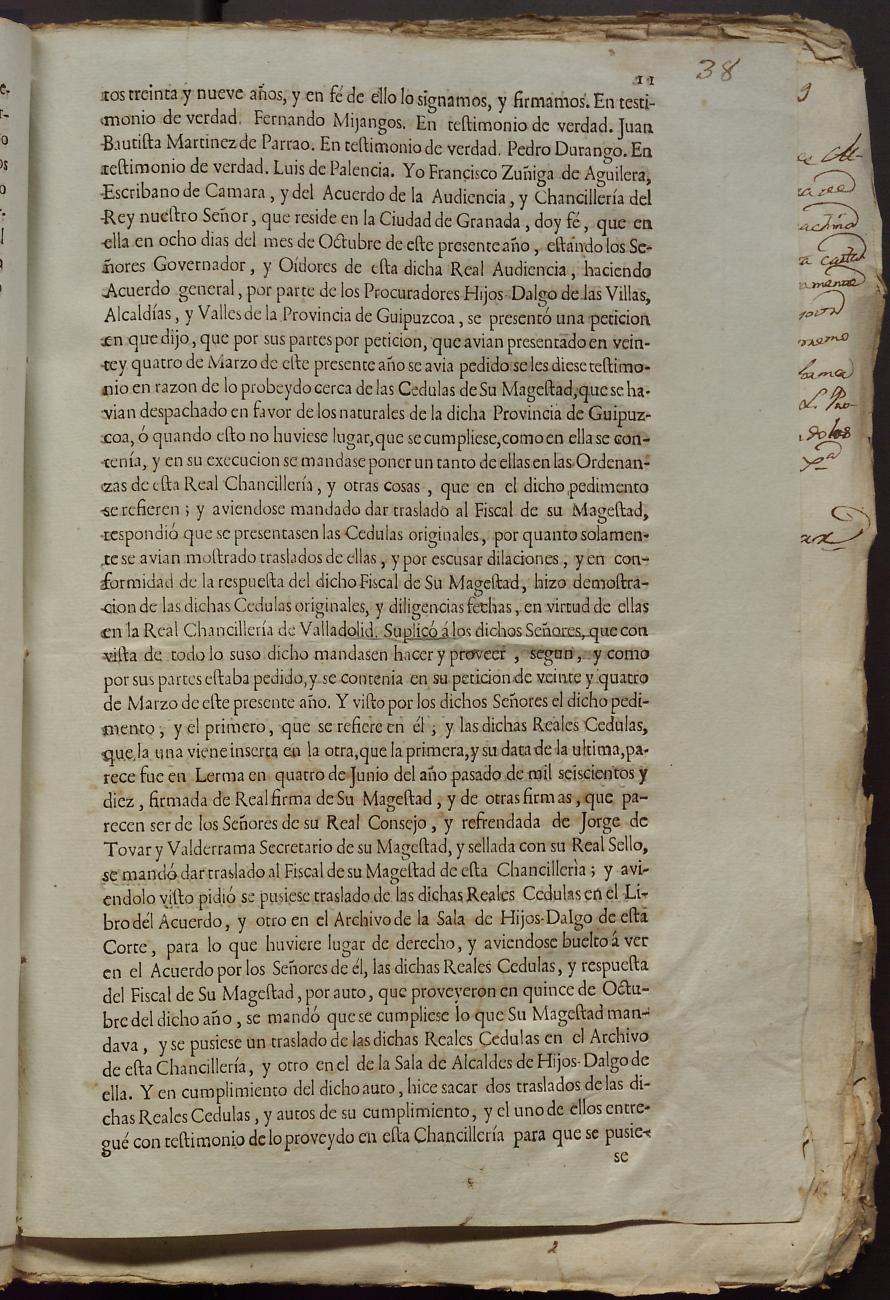 11
38
tos treinta y nueve años, y en fé de ello lo signamos, y firmamos. En testi-
monio de verdad. Fernando Mijangos. En testimonio de verdad. Juan
Bautista Martinez de Parrao. En testimonio de verdad. Pedro Durango. En
testimonio de verdad. Luis de Palencia. Yo Francisco Zuñiga de Aguilera,
Escribano de Camara, y del Acuerdo de la Audiencia, y Chancillería del
Rey nuestro Señor, que reside en la Ciudad de Granada, doy fé, que en
ella en ocho dias del mes de Octubre de este presente año, estando los Se-
ñores Governador, y Oídores de esta dicha Real Audiencia, haciendo
Acuerdo general, por parte de los Procuradores Hijos-Dalgo de las Villas,
Alcaldías, y Valles de la Provincia de Guipuzcoa, se presentó una peticion
en que dijo, que por sus partes por peticion, que avian presentado en vein-
tey quatro de Marzo de este presente año se avia pedido se les diese testimo-
nio en razon de lo probeydo cerca de las Cedulas de Su Magestad, que se ha-
vian despachado en favor de los naturales de la dicha Provincia de Guipuz-
coa, ó quando esto no huviese lugar, que se cumpliese, como en ella se con-
tenía, y en su execucion se mandase poner un tanto de ellas en las Ordenan-
zas de esta Real Chancillería, y otras cosas, que en el dicho pedimento
se refieren; y aviendose mandado dar traslado al Fiscal de su Magestad,
respondió que se presentasen las Cedulas originales, por quanto solamen-
te se avian mostrado traslados de ellas, y por escusar dilaciones, y en con-
formidad de la respuesta del dicho Fiscal de Su Magestad, hizo demostra-
cion de las dichas Cedulas originales, y diligencias fechas, en virtud de ellas
en la Real Chancillería de Valladolid. Suplicó á los dichos Señores, que con
vista de todo lo suso dicho mandasen hacer y proveer, segun, y como
por sus partes estaba pedido, y se contenia en su peticion de veinte y quatro
de Marzo de este presente año. Y visto por los dichos Señores el dicho pedi-
mento, y el primero, que se refiere en él, y las dichas Reales Cedulas,
que la una viene inserta en la otra, que la primera, y su data de la ultima, pa-
rece fue en Lerma en quatro de Junio del año pasado de mil seiscientos y
diez, firmada de Real firma de Su Magestad, y de otras firmas, que pa-
recen ser de los Señores de su Real Consejo, y refrendada de Jorge de
Tovar y Valderrama Secretario de su Magestad, y sellada con su Real Sello,
se mandó dar traslado al Fiscal de su Magestad de esta Chancillerìa; y avi-
endolo visto pidió se pusiese traslado de las dichas Reales Cedulas en el Li-
bro del Acuerdo, y otro en el Archivo de la Sala de Hijos-Dalgo de esta
Corte, para lo que huviere lugar de derecho, y aviendose buelto á ver
en el Acuerdo por los Señores de él, las dichas Reales Cedulas, y respuesta
del Fiscal de Su Magestad, por auto, que proveyeron en quince de Octu-
bre del dicho año, se mandó que se cumpliese lo que Su Magestad man-
dava, y se pusiese un traslado de las dichas Reales Cedulas en el Archivo
de esta Chancillería, y otro en el de la Sala de Alcaldes de Hijos-Dalgo de
ella. Y en cumplimiento del dicho auto, hice sacar dos traslados de las di-
chas Reales Cedulas, y autos de su cumplimiento, y el uno de ellos entre-
gué con testimonio de lo proveydo en esta Chancillería para que se pusie-
se
2